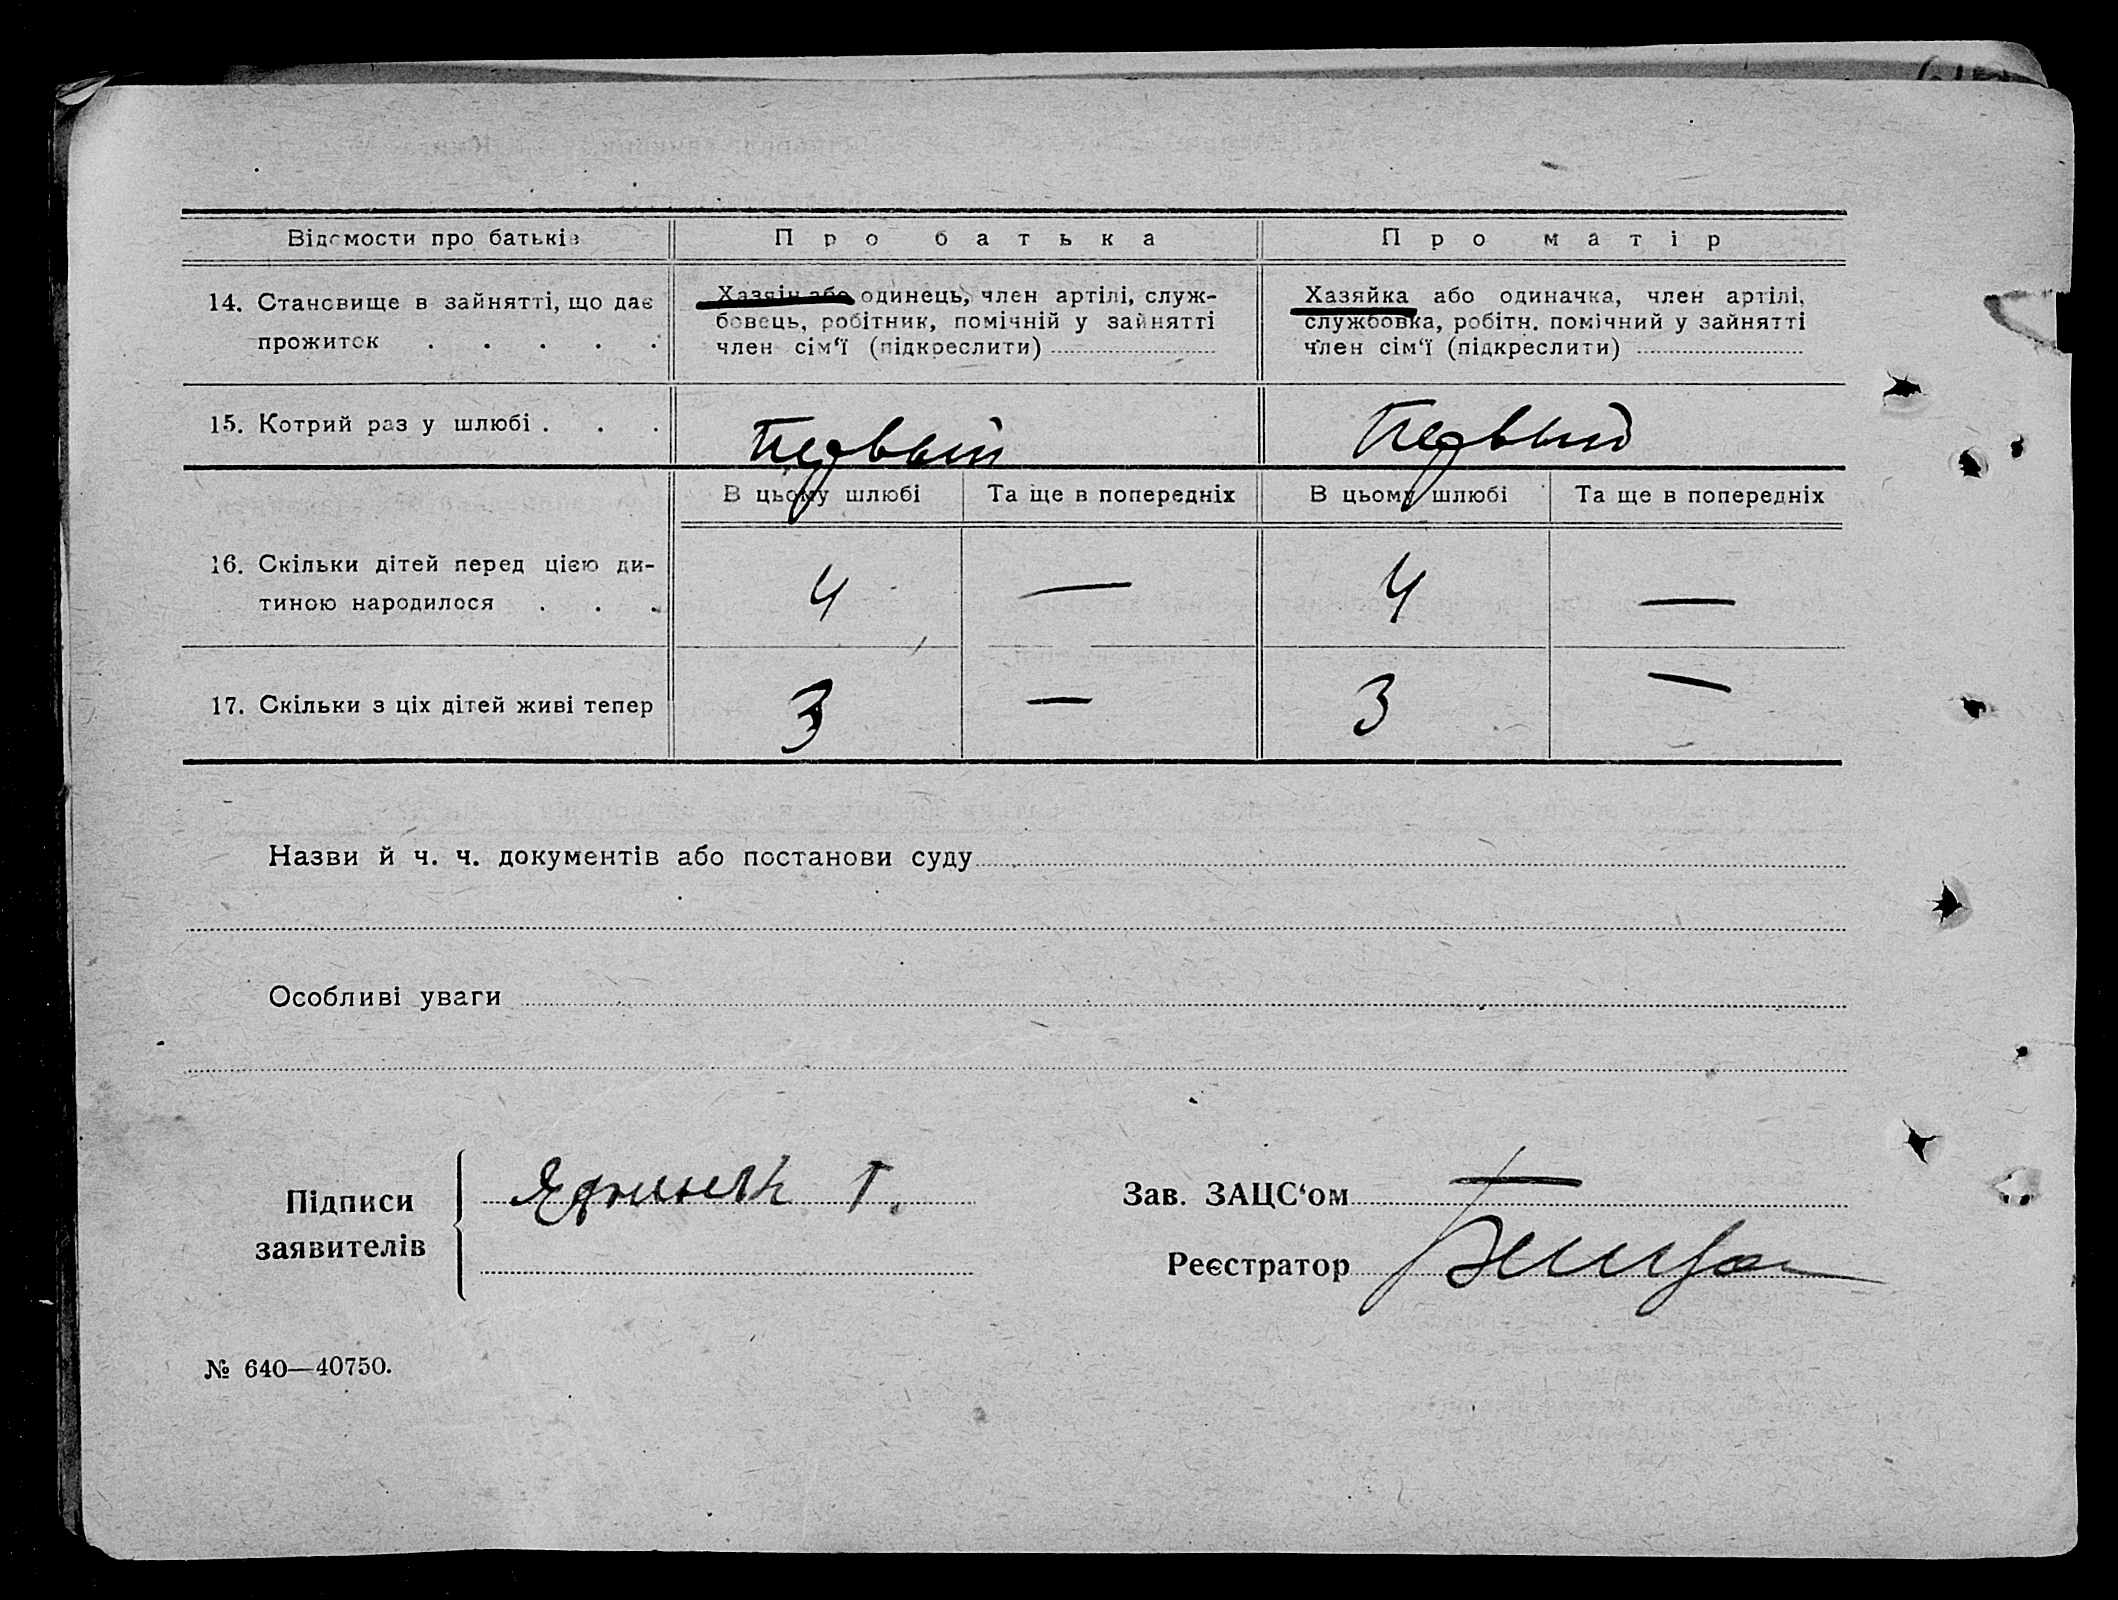 Відомости про батьків
Про батька
Про матір
14. Становище в зайнятті, що дає
прожиток . . . . .
Хазяїн або одинець, член артілі, служ-
бовець, робітник, помічній у зайнятті
член сім'ї (підкреслити)
Хазяйка або одиначка, член артілі,
службовка, робітн. помічний у зайнятті
член сім'ї (підкреслити)
15. Котрий раз у шлюбі . . .
Первый
Первый
В цьому шлюбі
Та ще в попередніх
В цьому шлюбі
Та ще в попередніх
16. Скільки дітей перед цією ди-
тиною народилося . . .
4 — 4 —
17. Скільки з ціх дітей живі тепер
3 — 3 —
Назви й ч. ч. документів або постанови суду
Особливі уваги
Підписи
заявителів
Г.
Зав. ЗАЦС'ом —
Реєстратор
№ 640—40750.